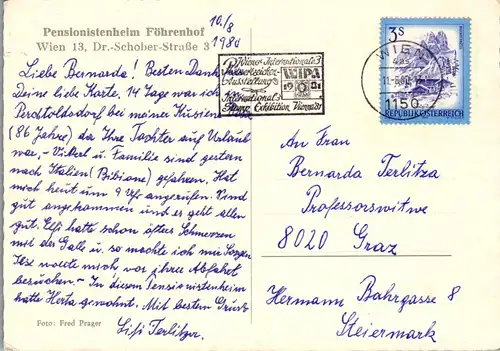 Pensionistenheim Föhrenhof
Wien 13, Dr.-Schober-Straße 3
10./8
1980
Liebe Bernarda! Besten Dank
Deine liebe Karte. 14 Tage war ich
Perchtoldsdorf bei meiner Kusiene
(86 Jahre) da ihre Tochter auf Urlaub
war. - u Familie sind gestern
nach Italien (Bibione) gefahren. Hat
mich heut um 9 Uhr angerufen. Sind
gut angekommen und es geht allen
gut. Elfi hatte schon öfters Schmerzen
mit der Galle u. so machte ich mir Sorgen
wollte mich vor ihrer Abfahrt
besuchen. - In diesem Pensionistenheim
hatte Herta gewohnt. Mit besten Gruss
Lisi Terlitzer.
Foto: Fred Prager
Wiener Internationale
Ausstellung
WIPA
1981
International
Stamp Exhibition Vienna 81
3 S
WIEN
1150
REPUBLIK ÖSTERREICH
An Frau
Bernarda Terlitza
Professorswitwe
8020 Graz
Hermann Bahrgasse 8
Steiermark